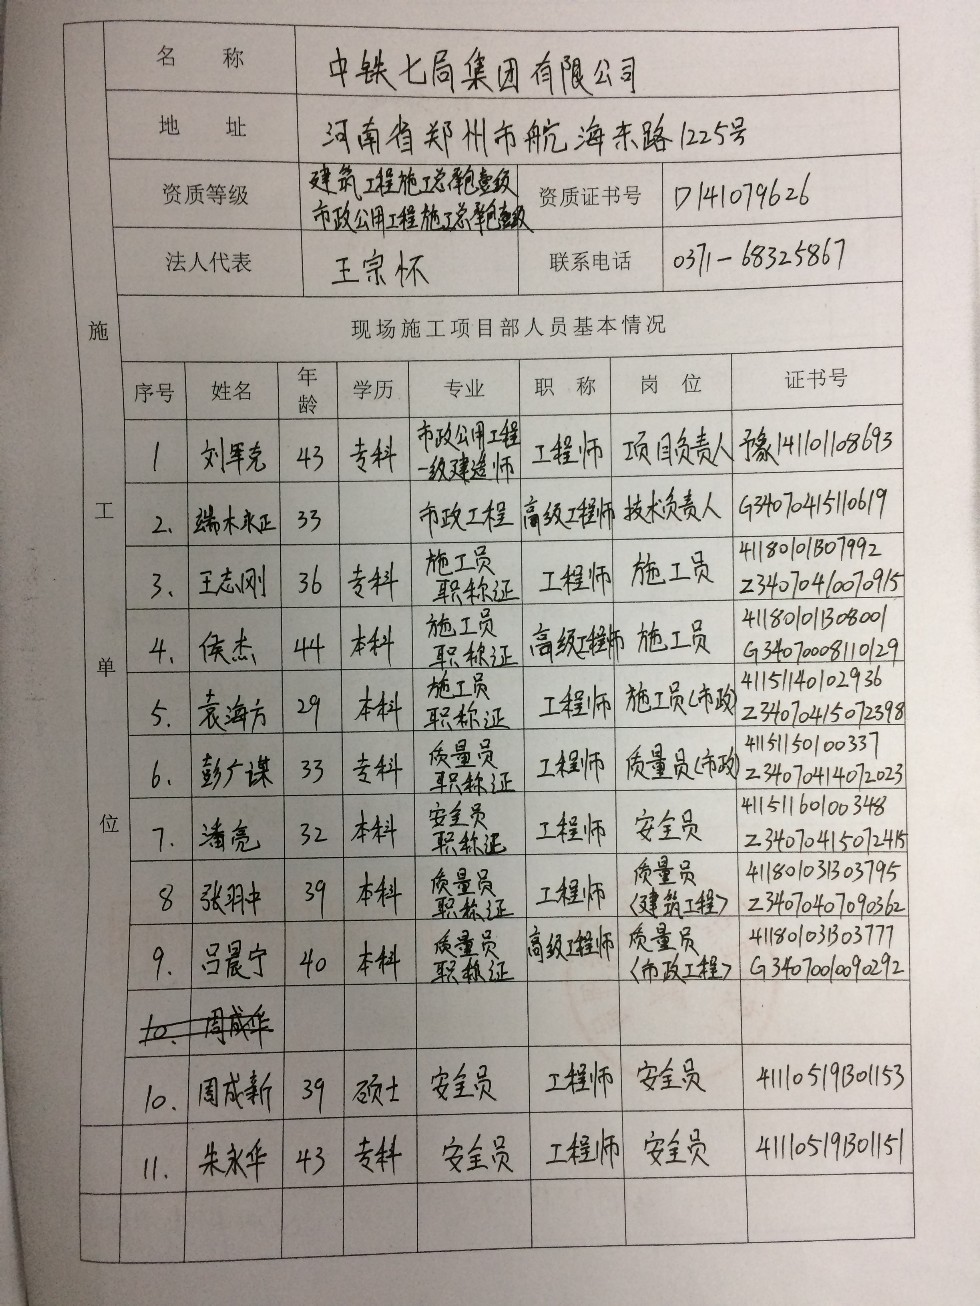 名 称 中铁七局集团有限公司
地 址 河南省郑州市航海东路1225号
资质等级 建筑工程施工总承包壹级 资质证书号 D141079626
市政公用工程施工总承包壹级
法人代表 王宗怀 联系电话 0371-68325867
施工单位
现场施工项目部人员基本情况
序号 姓名 年龄 学历 专业 职称 岗位 证书号
1 刘军克 43 专科 市政公用工程 工程师 项目负责人 豫141101108693
一级建造师
2. 端木永正 33 市政工程 高级工程师 技术负责人 G34070415110619
3. 王志刚 36 专科 施工员 工程师 施工员 41180101307992
职称证 Z34070410070915
4. 侯杰 44 本科 施工员 高级工程师 施工员 41180101308001
职称证 G34070008110129
5. 袁海方 29 本科 施工员 工程师 施工员(市政) 41151140102936
职称证 Z34070415072398
6. 彭广谋 33 专科 质量员 工程师 质量员(市政) 41151150100337
职称证 Z34070414072023
7. 潘亮 32 本科 安全员 工程师 安全员 41151160100348
职称证 Z34070415072415
8 张羽中 39 本科 质量员 工程师 质量员 411801031303795
职称证 <建筑工程> Z34070407090362
9. 吕晨宁 40 本科 质量员 高级工程师 质量员 411801031303777
职称证 <市政工程> G34070010090292
10. 周成华
10. 周成新 39 硕士 安全员 工程师 安全员 41110519B01153
11. 朱永华 43 专科 安全员 工程师 安全员 41110519B01151